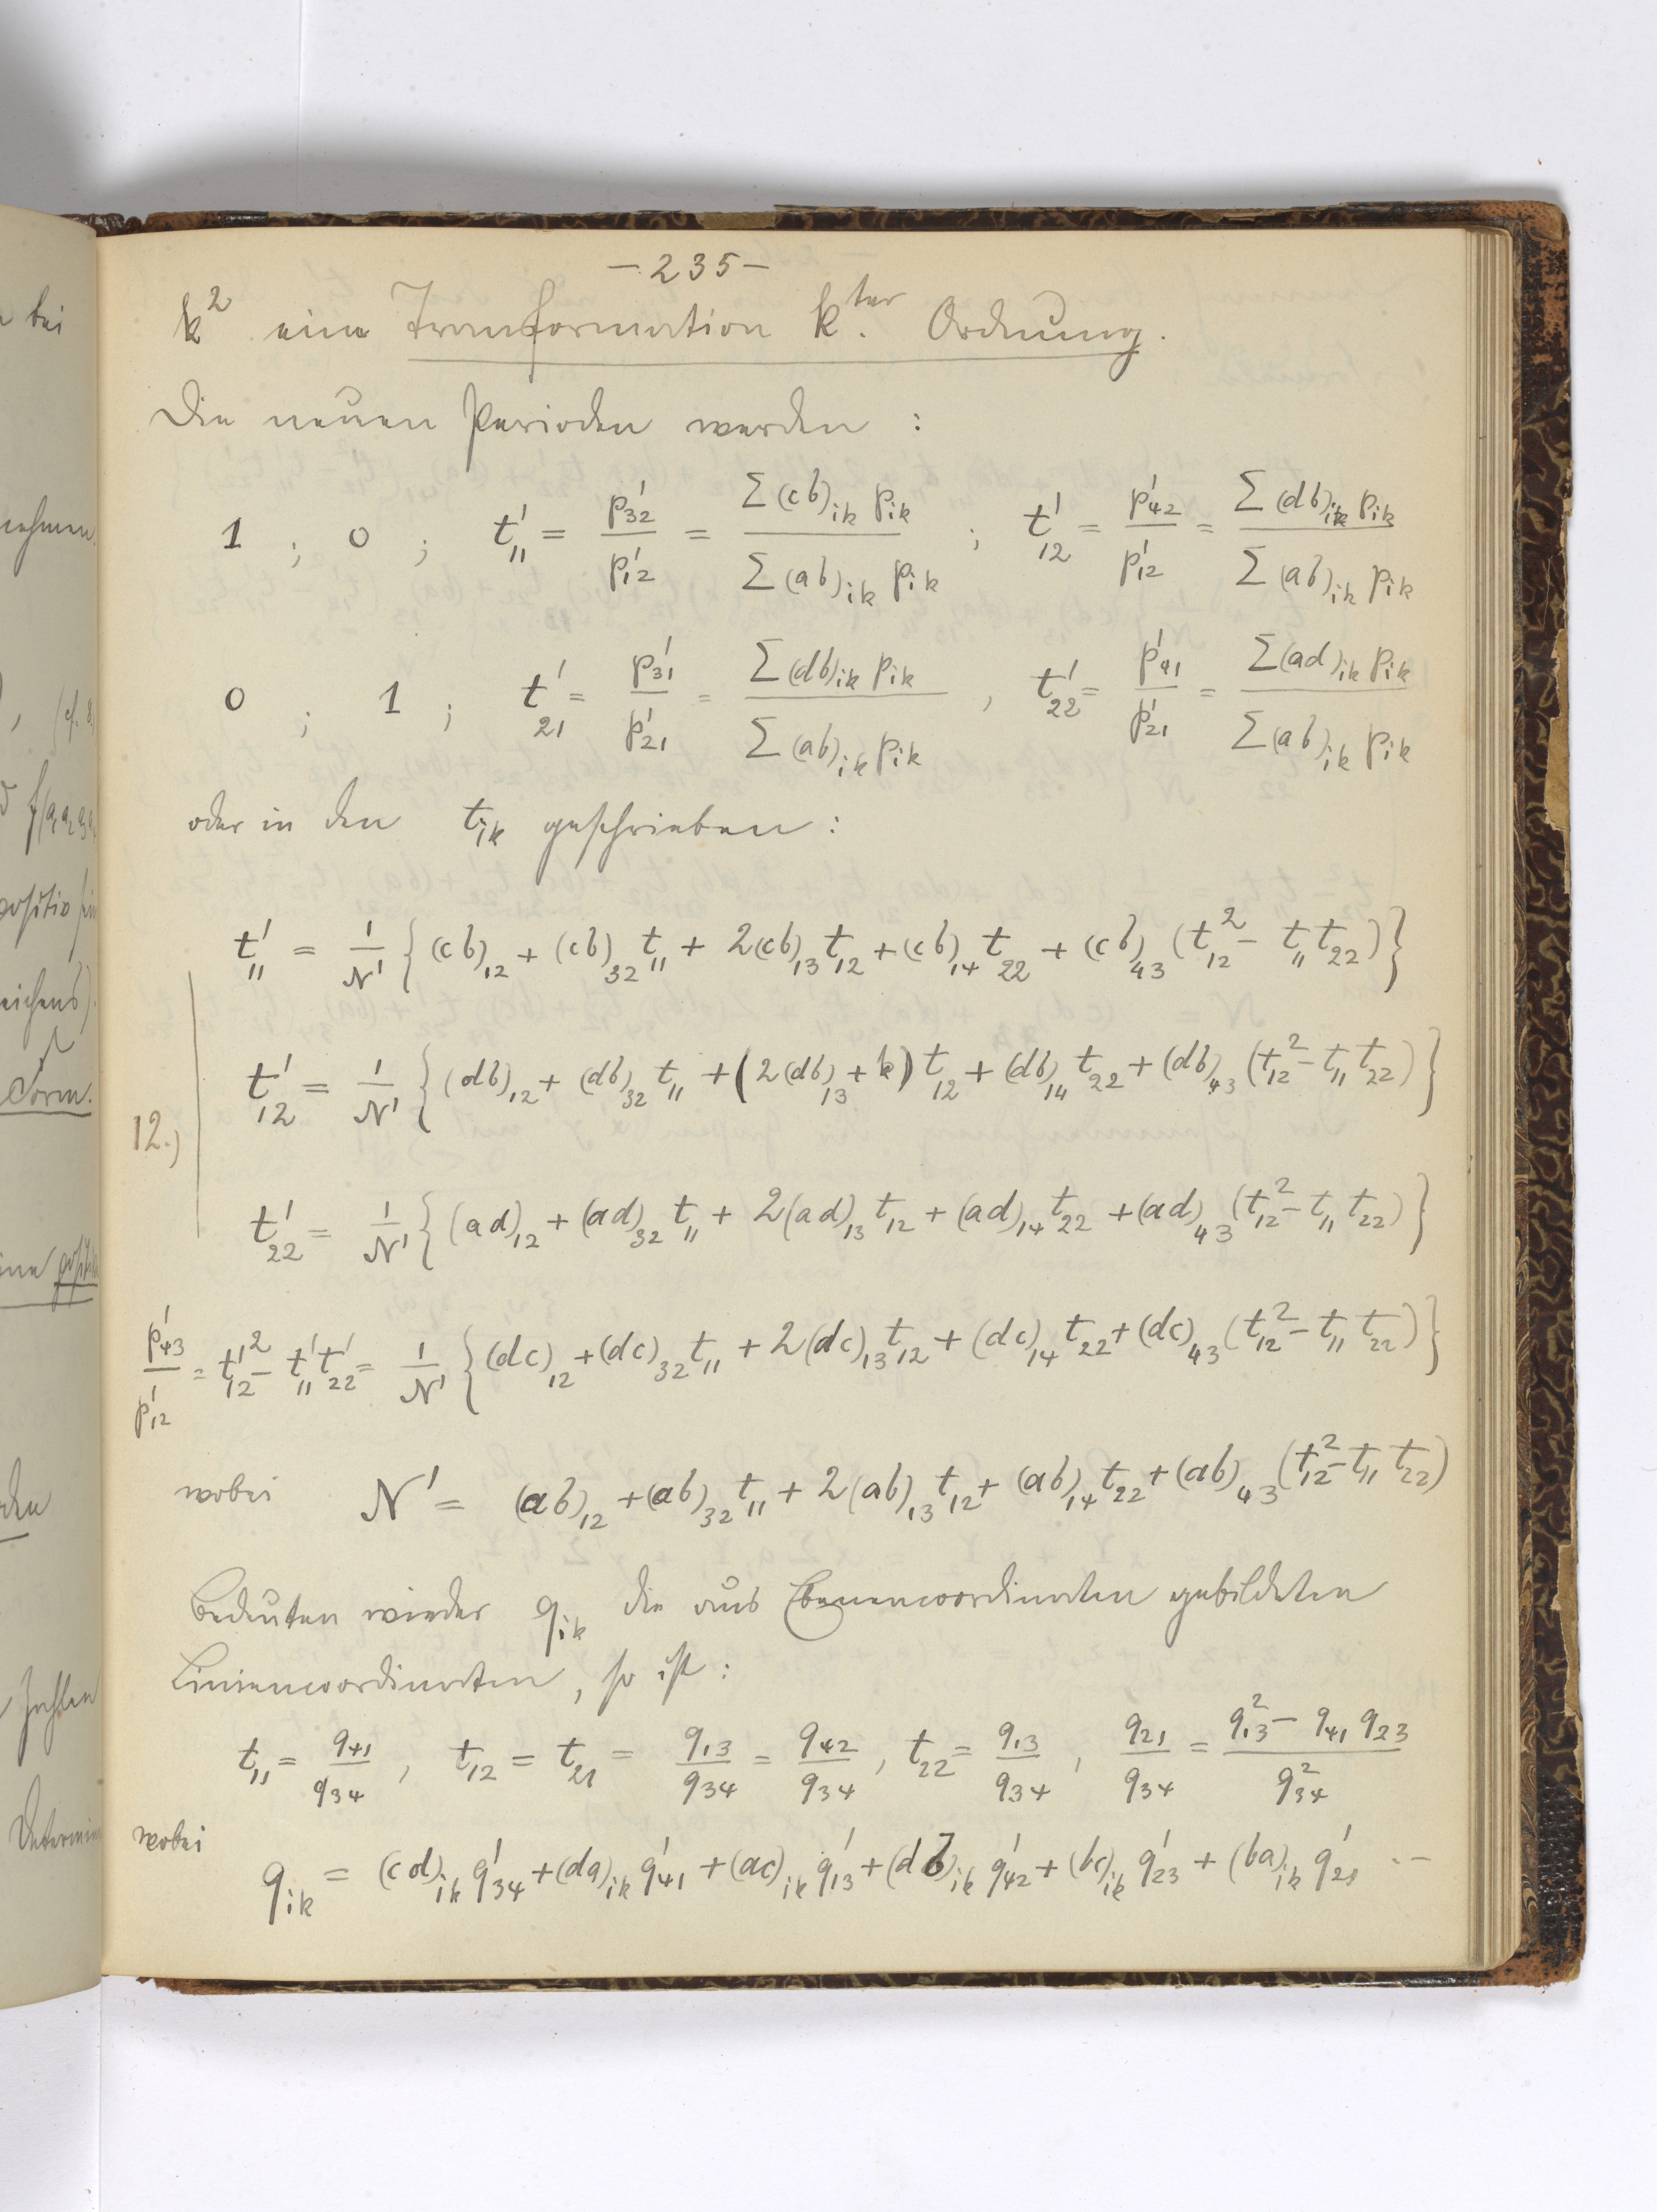 – 235 –
k² eine Transformation k^ter. Ordnung.
Die neuen Perioden werden :
1 ; 0 ; t'₁₁ = p'₃₂/p'₁₂ = Σ(cb)ᵢₖ pᵢₖ / Σ(ab)ᵢₖ pᵢₖ ; t'₁₂ = p'₄₂/p'₁₂ = Σ(db)ᵢₖ pᵢₖ / Σ(ab)ᵢₖ pᵢₖ
0 ; 1 ; t'₂₁ = p'₃₁/p'₂₁ = Σ(db)ᵢₖ pᵢₖ / Σ(ab)ᵢₖ pᵢₖ , t'₂₂ = p'₄₁/p'₂₁ = Σ(ad)ᵢₖ pᵢₖ / Σ(ab)ᵢₖ pᵢₖ
oder in den tᵢₖ geschrieben :
t'₁₁ = 1/N' {(cb)₁₂ + (cb)₃₂ t₁₁ + 2(cb)₁₃ t₁₂ + (cb)₁₄ t₂₂ + (cb)₄₃ (t₁₂² – t₁₁ t₂₂)}
12.) t'₁₂ = 1/N' {(db)₁₂ + (db)₃₂ t₁₁ + (2(db)₁₃ + k) t₁₂ + (db)₁₄ t₂₂ + (db)₄₃ (t₁₂² – t₁₁ t₂₂)}
t'₂₂ = 1/N' {(ad)₁₂ + (ad)₃₂ t₁₁ + 2(ad)₁₃ t₁₂ + (ad)₁₄ t₂₂ + (ad)₄₃ (t₁₂² – t₁₁ t₂₂)}
p'₄₃/p'₁₂ = t'₁₂² – t'₁₁ t'₂₂ = 1/N' {(dc)₁₂ + (dc)₃₂ t₁₁ + 2(dc)₁₃ t₁₂ + (dc)₁₄ t₂₂ + (dc)₄₃ (t₁₂² – t₁₁ t₂₂)}
wobei N' = (ab)₁₂ + (ab)₃₂ t₁₁ + 2(ab)₁₃ t₁₂ + (ab)₁₄ t₂₂ + (ab)₄₃ (t₁₂² – t₁₁ t₂₂)
Bedeuten wieder qᵢₖ die aus Ebenencoordinaten gebildeten
Liniencoordinaten, so ist :
t₁₁ = q₄₁/q₃₄ , t₁₂ = t₂₁ = q₁₃/q₃₄ = q₄₂/q₃₄ , t₂₂ = q₁₃/q₃₄ , q₂₁/q₃₄ = (q₁₃² – q₄₁ q₂₃)/q₃₄²
wobei
qᵢₖ = (cd)ᵢₖ q'₃₄ + (da)ᵢₖ q'₄₁ + (ac)ᵢₖ q'₁₃ + (db)ᵢₖ q'₄₂ + (bc)ᵢₖ q'₂₃ + (ba)ᵢₖ q'₂₁ . –